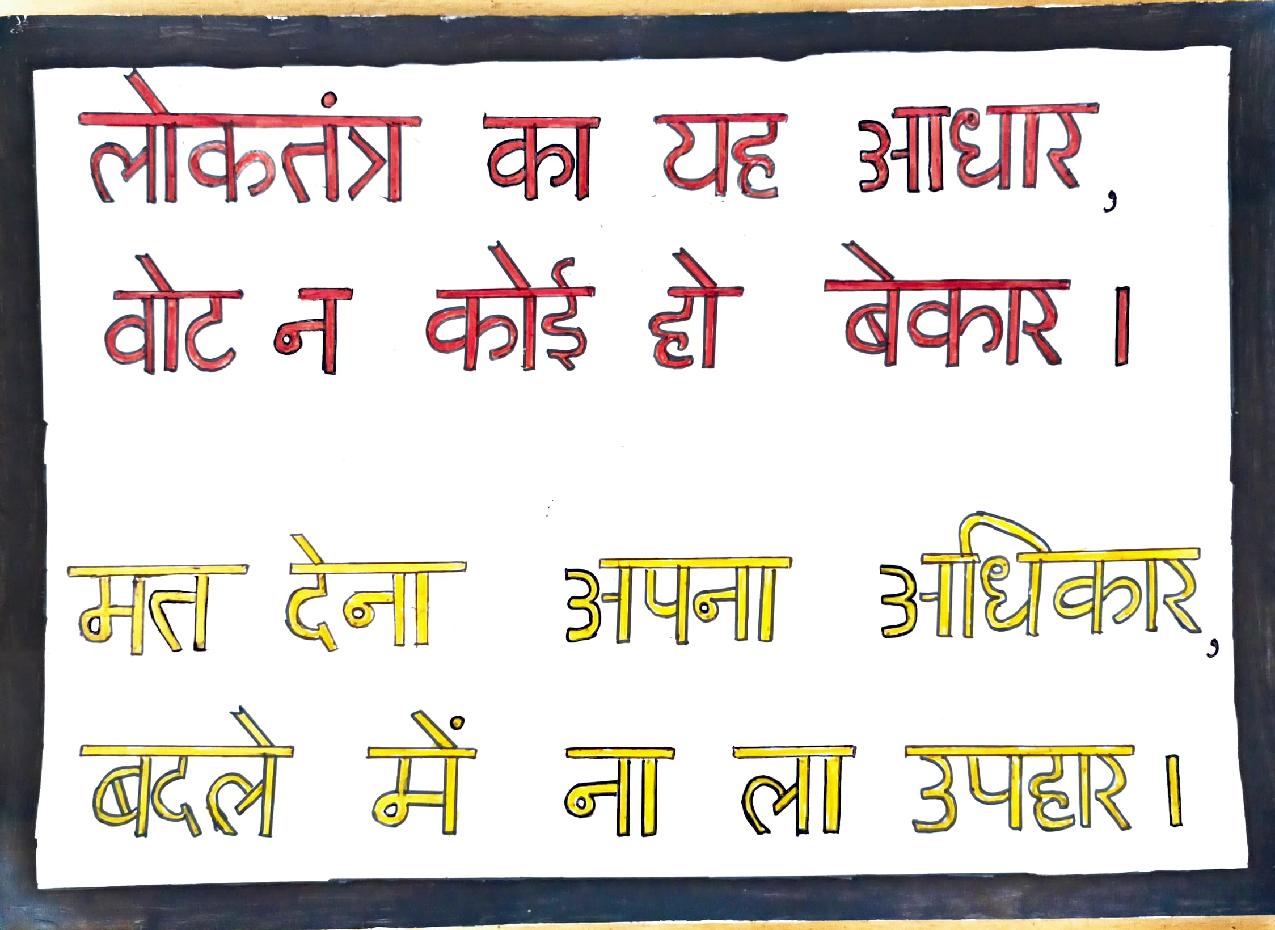 लोकतंत्र का यह आधार,
वोट न कोई हो बेकार ।
मत देना अपना अधिकार,
बदले में ना ला उपहार ।